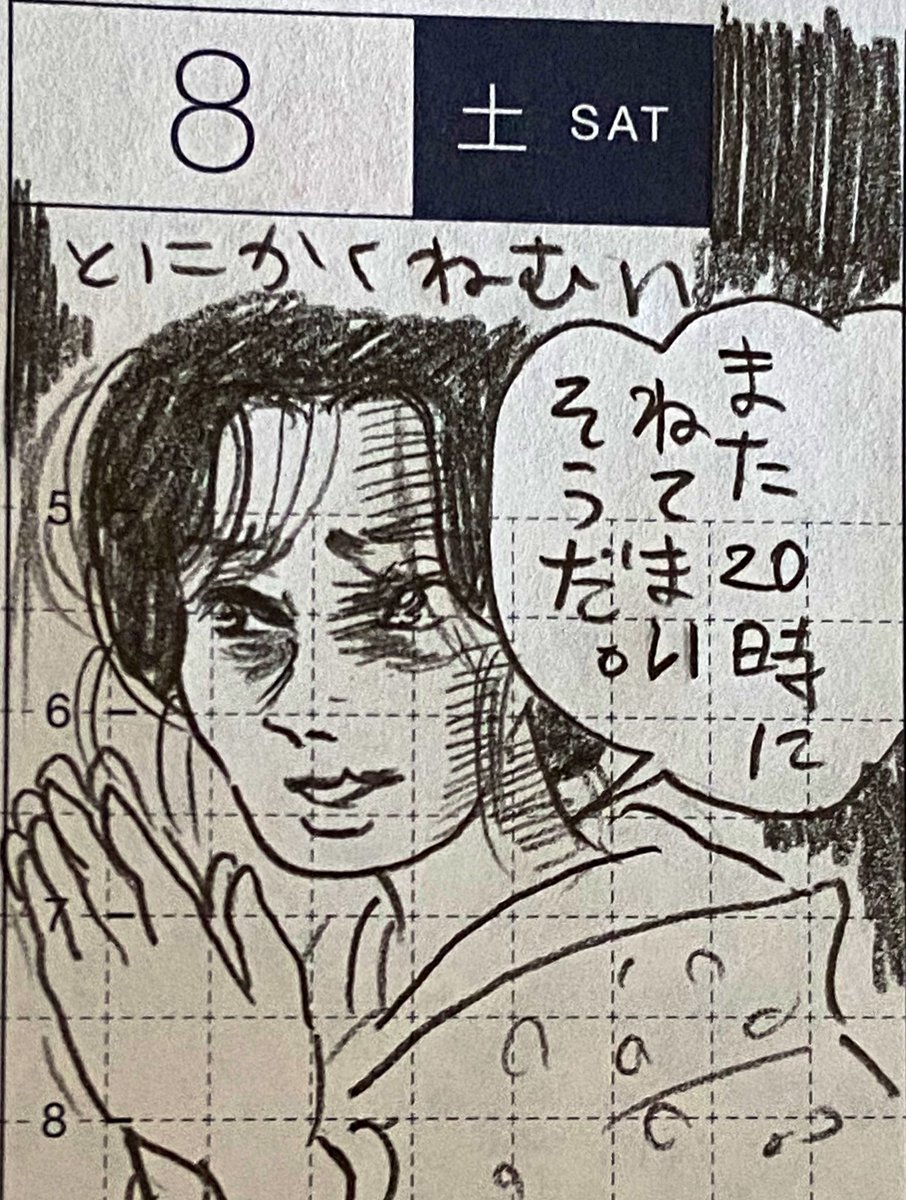 8
土 SAT
とにかくねむい
また20時に
ねてまい
そうだ。
5
6
7
8